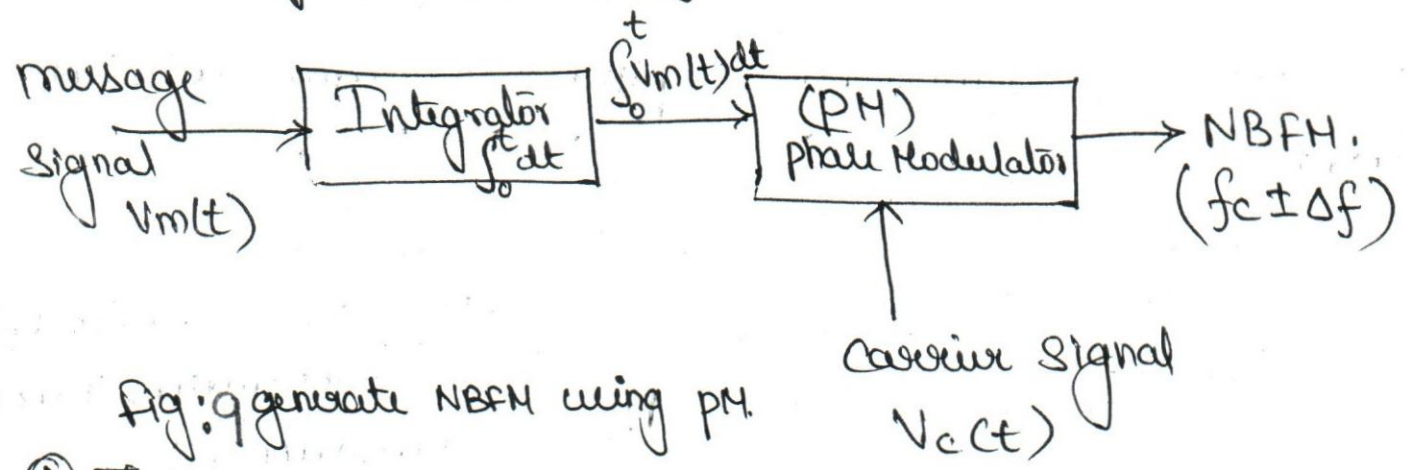 message
signal
Vm(t)
Integrator
∫₀ᵗ dt
∫₀ᵗ Vm(t)dt
(PM)
phase Modulator
NBFM.
(fc ± Δf)
carrier signal
Vc(t)
fig:9 generate NBFM using PM.